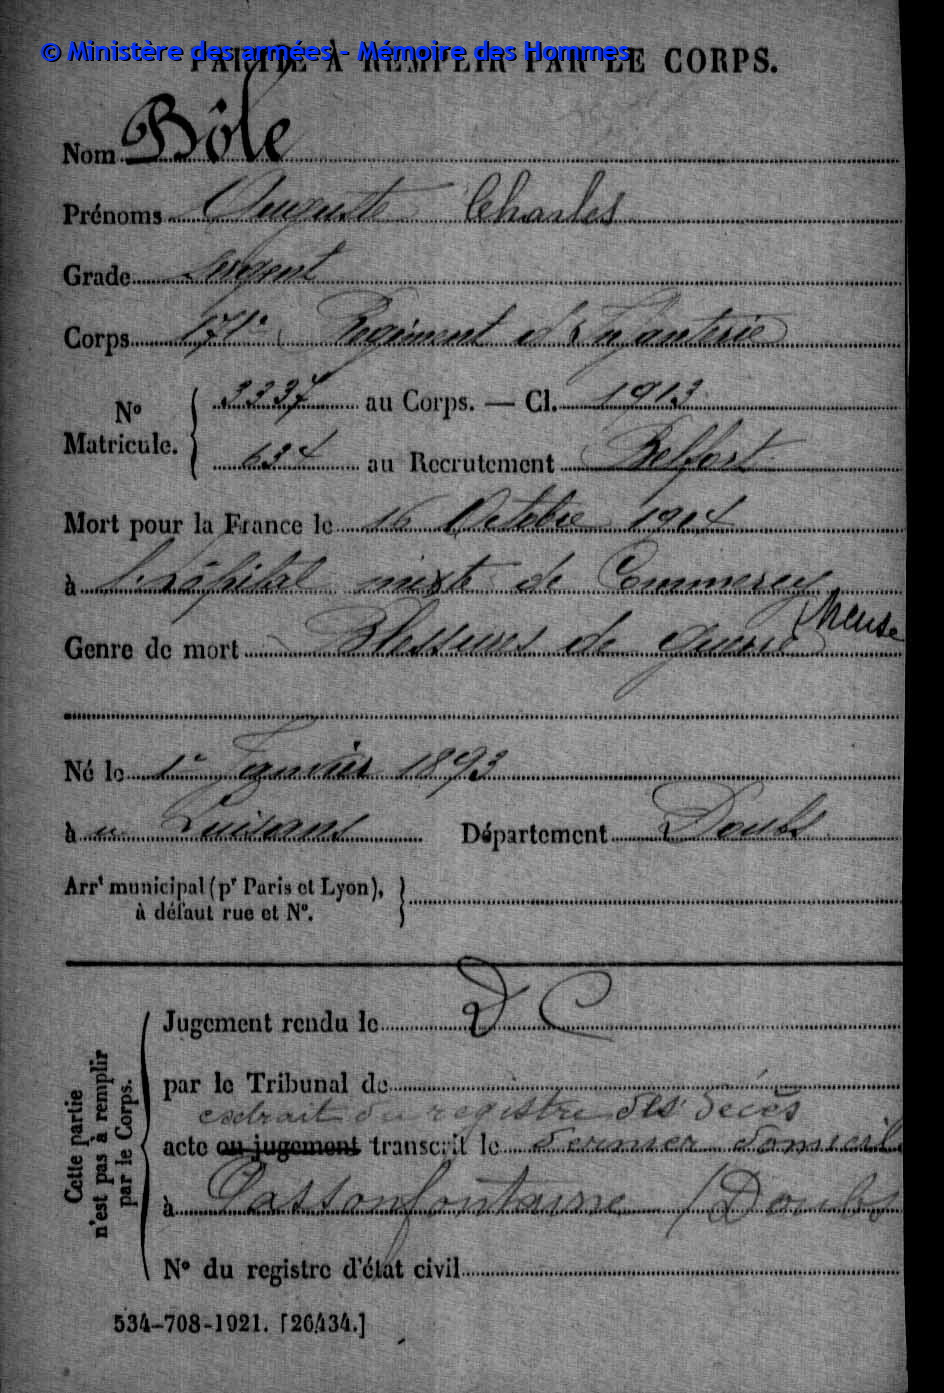 © Ministère des armées - Mémoire des Hommes
PARTIE À REMPLIR PAR LE CORPS.
Nom Bôle
Prénoms Auguste Charles
Grade Sergent
Corps 171e Régiment d'Infanterie
No Matricule. { 3337 au Corps. — Cl. 1913
634 au Recrutement Belfort
Mort pour la France le 16 Octobre 1914
à l'hôpital mixte de Commercy
(Meuse
Genre de mort Blessures de guerre
Né le 1er Janvier 1893
à Luisans Département Doubs
Arrt municipal (pr Paris et Lyon), }
à défaut rue et No.
Cette partie n'est pas à remplir par le Corps.
Jugement rendu le D C
par le Tribunal de
extrait du registre des décès
acte ou jugement transcrit le dernier domicile
à Passonfontaine (Doubs
No du registre d'état civil
534-708-1921. [26434.]